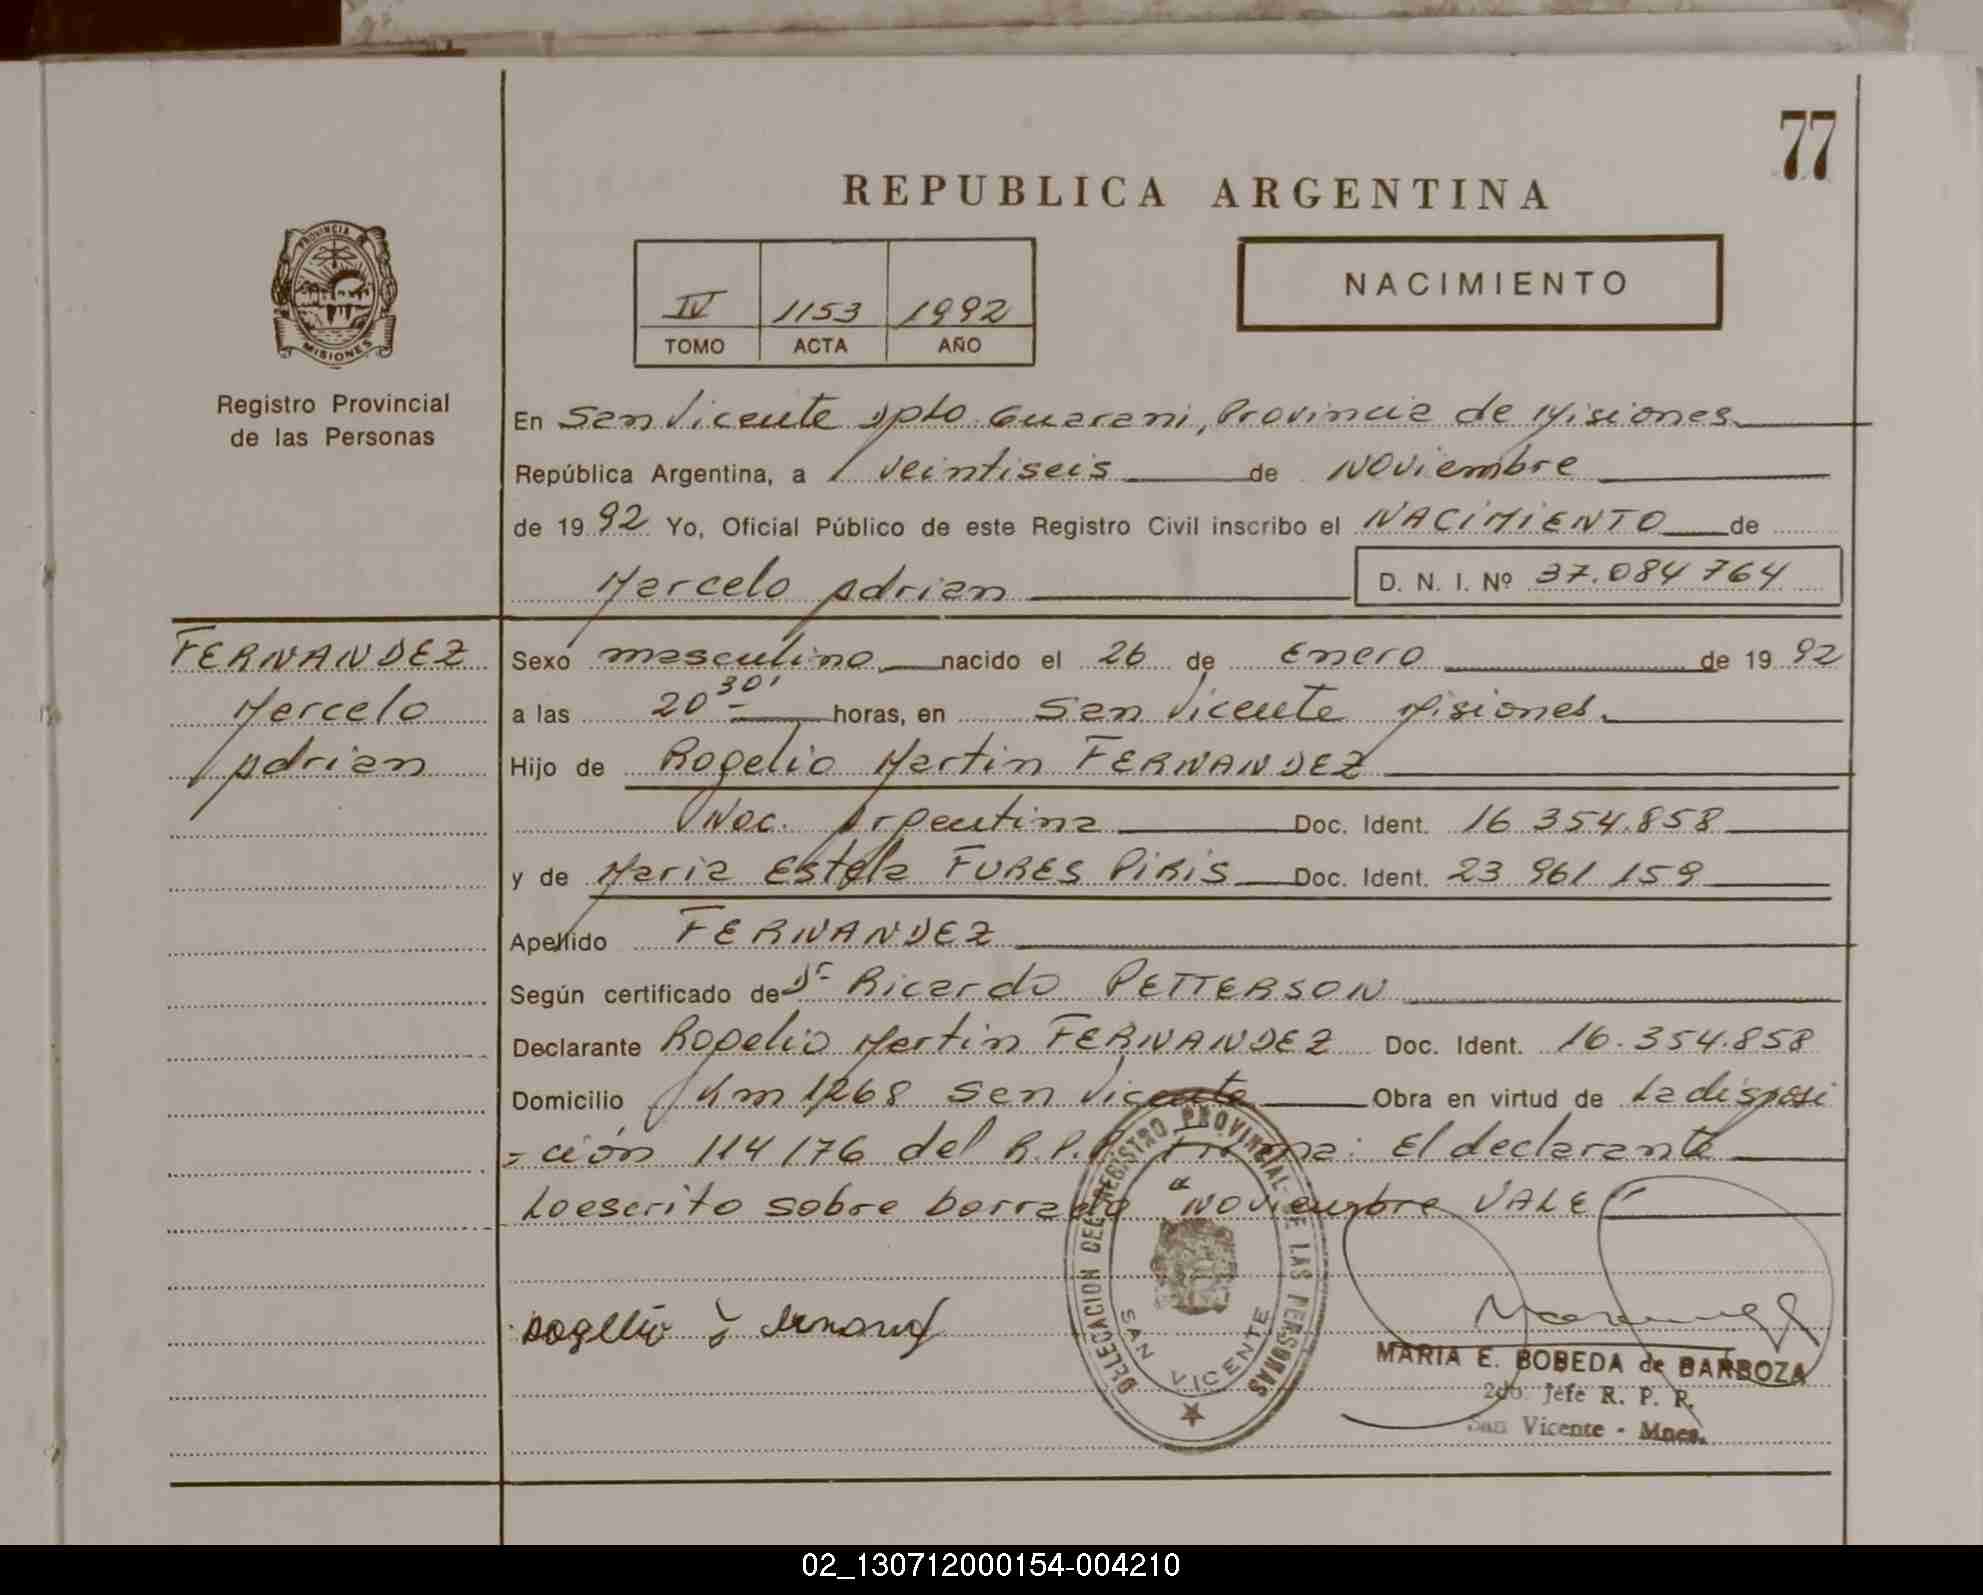 77
REPUBLICA ARGENTINA
PROVINCIA
MISIONES
Registro Provincial
de las Personas
IV 1153 1992
TOMO ACTA AÑO
NACIMIENTO
En San Vicente Dpto. Guarani, Provincia de Misiones
República Argentina, a veintiseis de Noviembre
de 1992 Yo, Oficial Público de este Registro Civil inscribo el NACIMIENTO de
Marcelo Adrian D. N. I. Nº 37.084 764
FERNANDEZ
Marcelo
Adrian
Sexo masculino nacido el 26 de Enero de 1992
a las 20 30' horas, en San Vicente Misiones.
Hijo de Rogelio Martin FERNANDEZ
Nac. Argentina Doc. Ident. 16 354.858
y de Maria Estela FURES PIRIS Doc. Ident. 23 961 159
Apellido FERNANDEZ
Según certificado de Dr Ricardo PETTERSON
Declarante Rogelio Martin FERNANDEZ Doc. Ident. 16.354.858
Domicilio Km 1268 San Vicente Obra en virtud de La disposi
=ción 114/76 del R.P.P. Firma: El declarante
Lo escrito sobre borrado "Noviembre VALE"
DELEGACION DEL REGISTRO PROVINCIAL DE LAS PERSONAS
SAN VICENTE
MARIA E. BOBEDA de BARBOZA
2do. Jefe R. P. P.
San Vicente - Mnes.
02_130712000154-004210